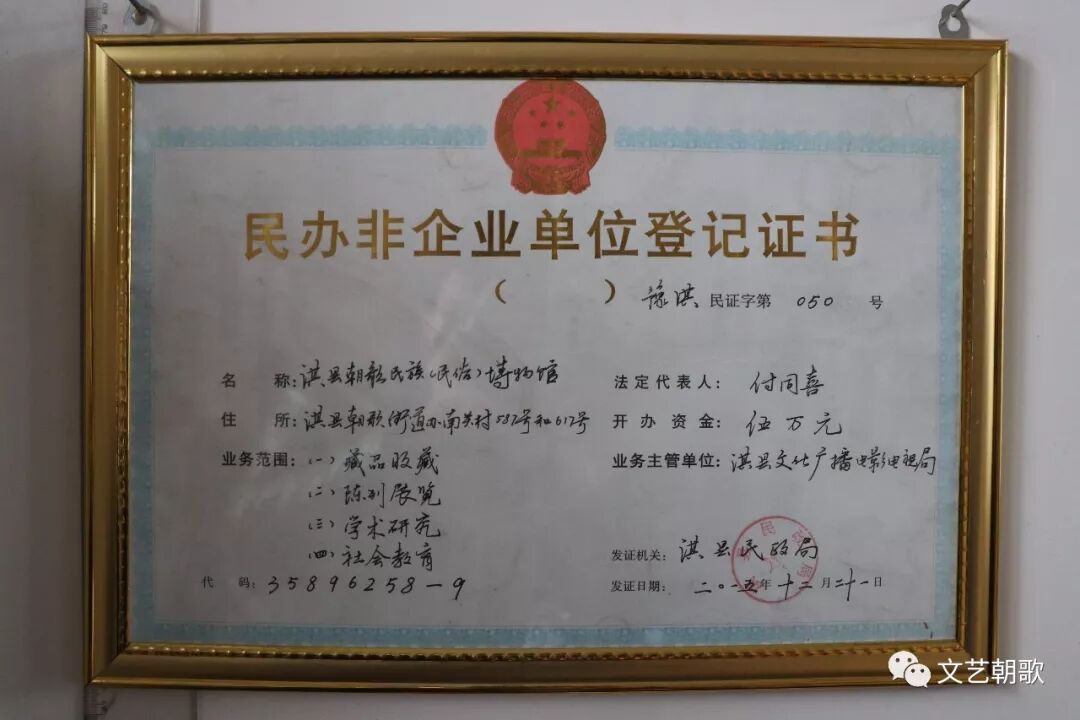 民办非企业单位登记证书
( ) 豫淇 民证字第 050 号
名 称: 淇县朝歌民族(民俗)博物馆
法定代表人: 付同喜
住 所: 淇县朝歌街道办南关村587号和617号
开办资金: 伍万元
业务范围: (一)藏品收藏
业务主管单位: 淇县文化广播电影电视局
(二)陈列展览
(三)学术研究
(四)社会教育
发证机关: 淇县民政局
代 码: 35896258-9
发证日期: 二〇一五年十二月二十一日
文艺朝歌